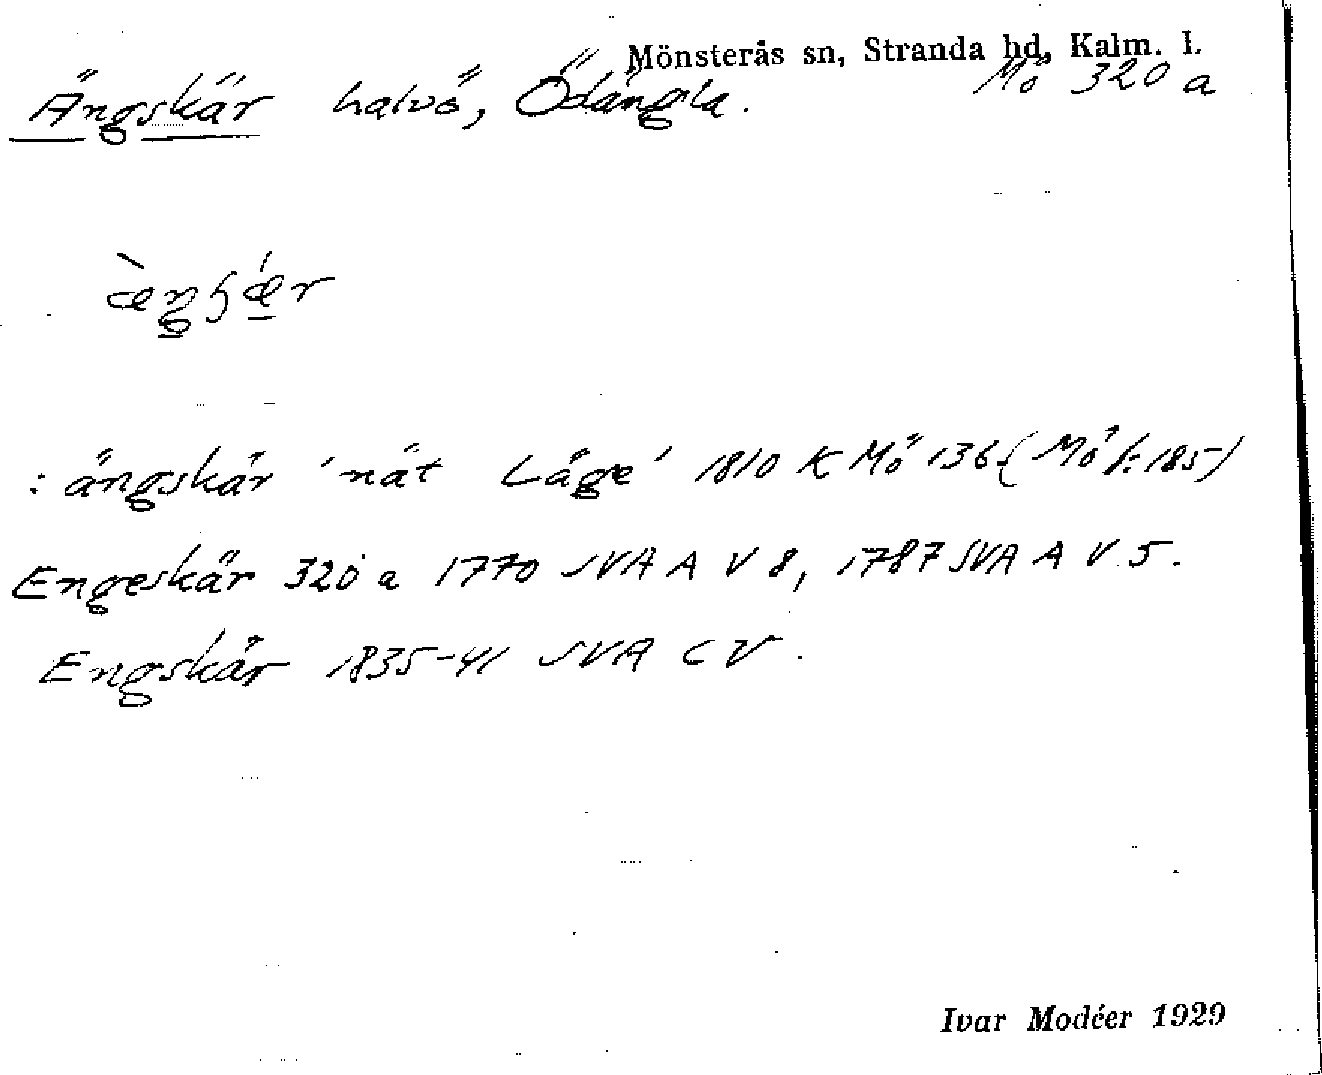 Mönsterås sn, Stranda hd, Kalm. l.
Ängskär halvö, Ödängla. Mö 320 a
: ängskär 'nät Läge' 1810 K Mö 136 (Mö f: 185)
Engeskär 320 a 1770 SVA A V 8, 1787 SVA A V 5.
Engskär 1835-41 SVA C V.
Ivar Modéer 1929